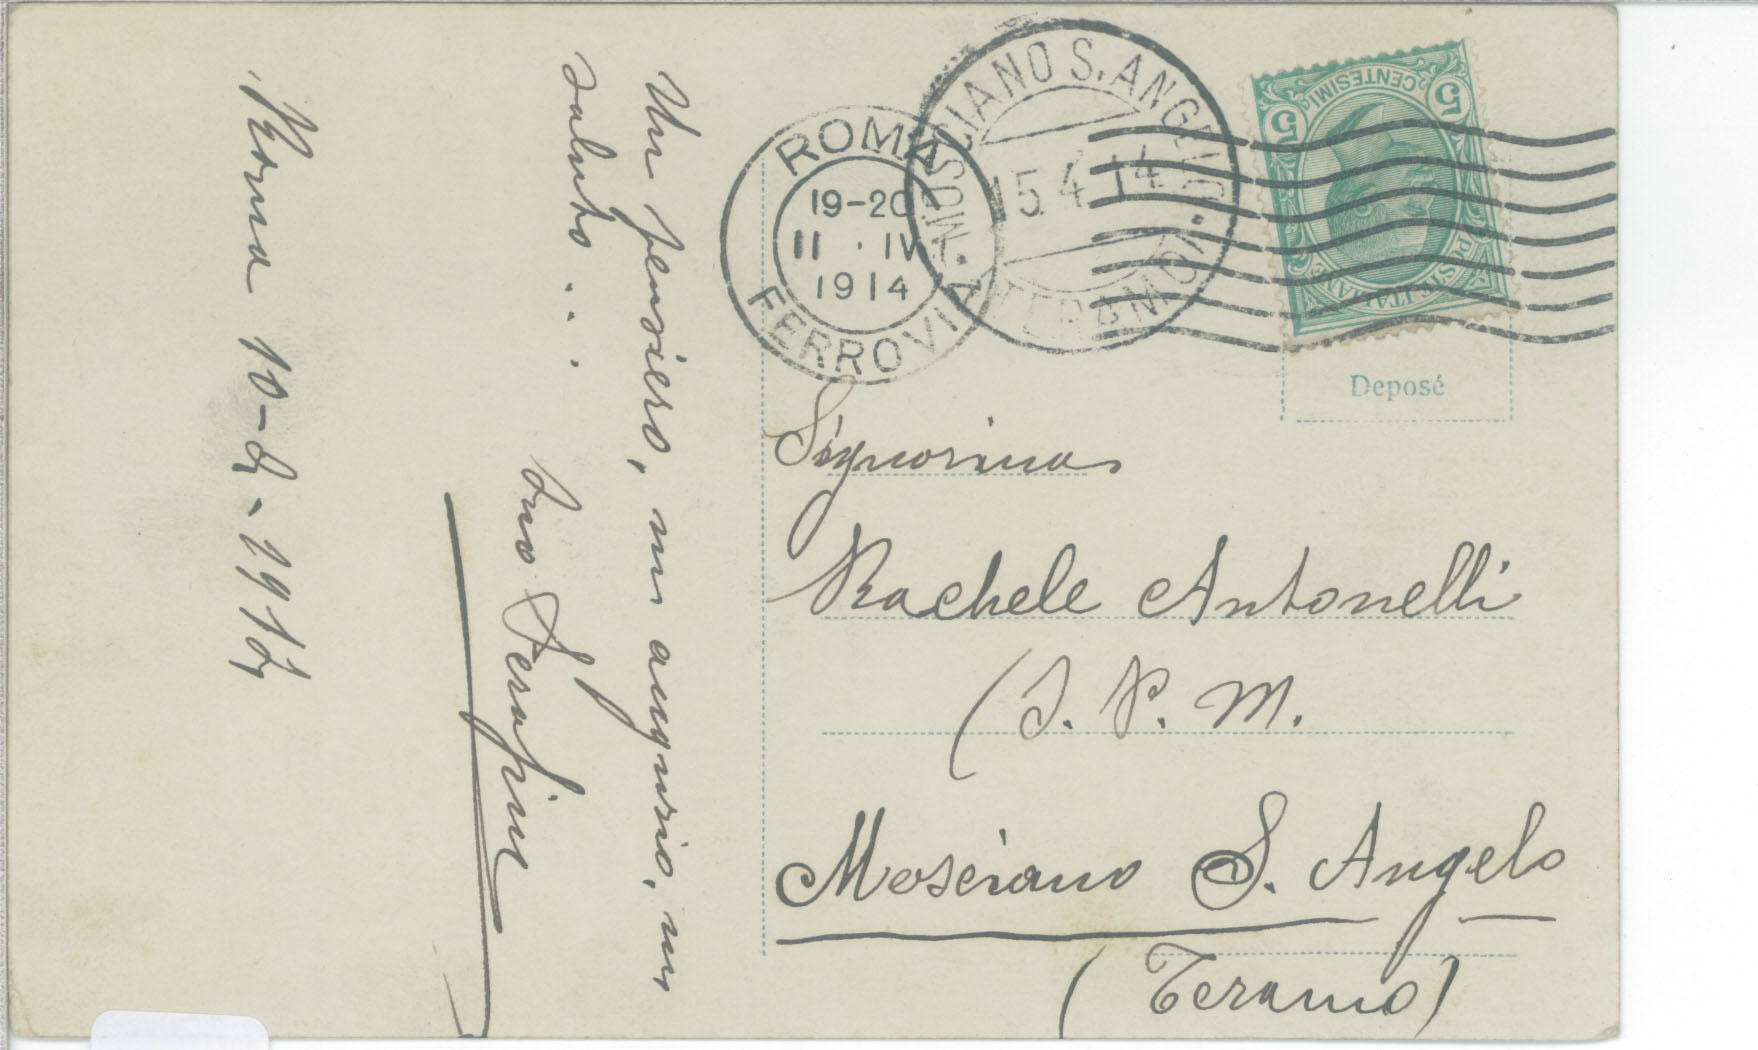 Roma 10-4-1914
Un pensiero, un augurio, un
saluto...
tuo Serafin
ROMA
19-20
11 · IV
1914
FERROVIA
MOSCIANO S. ANGELO
15.4.14
TERAMO
5 CENTESIMI 5
POSTE ITALIANE
Deposé
Signorina
Rachele Antonelli
(S. P. M.
Mosciano S. Angelo
(Teramo)